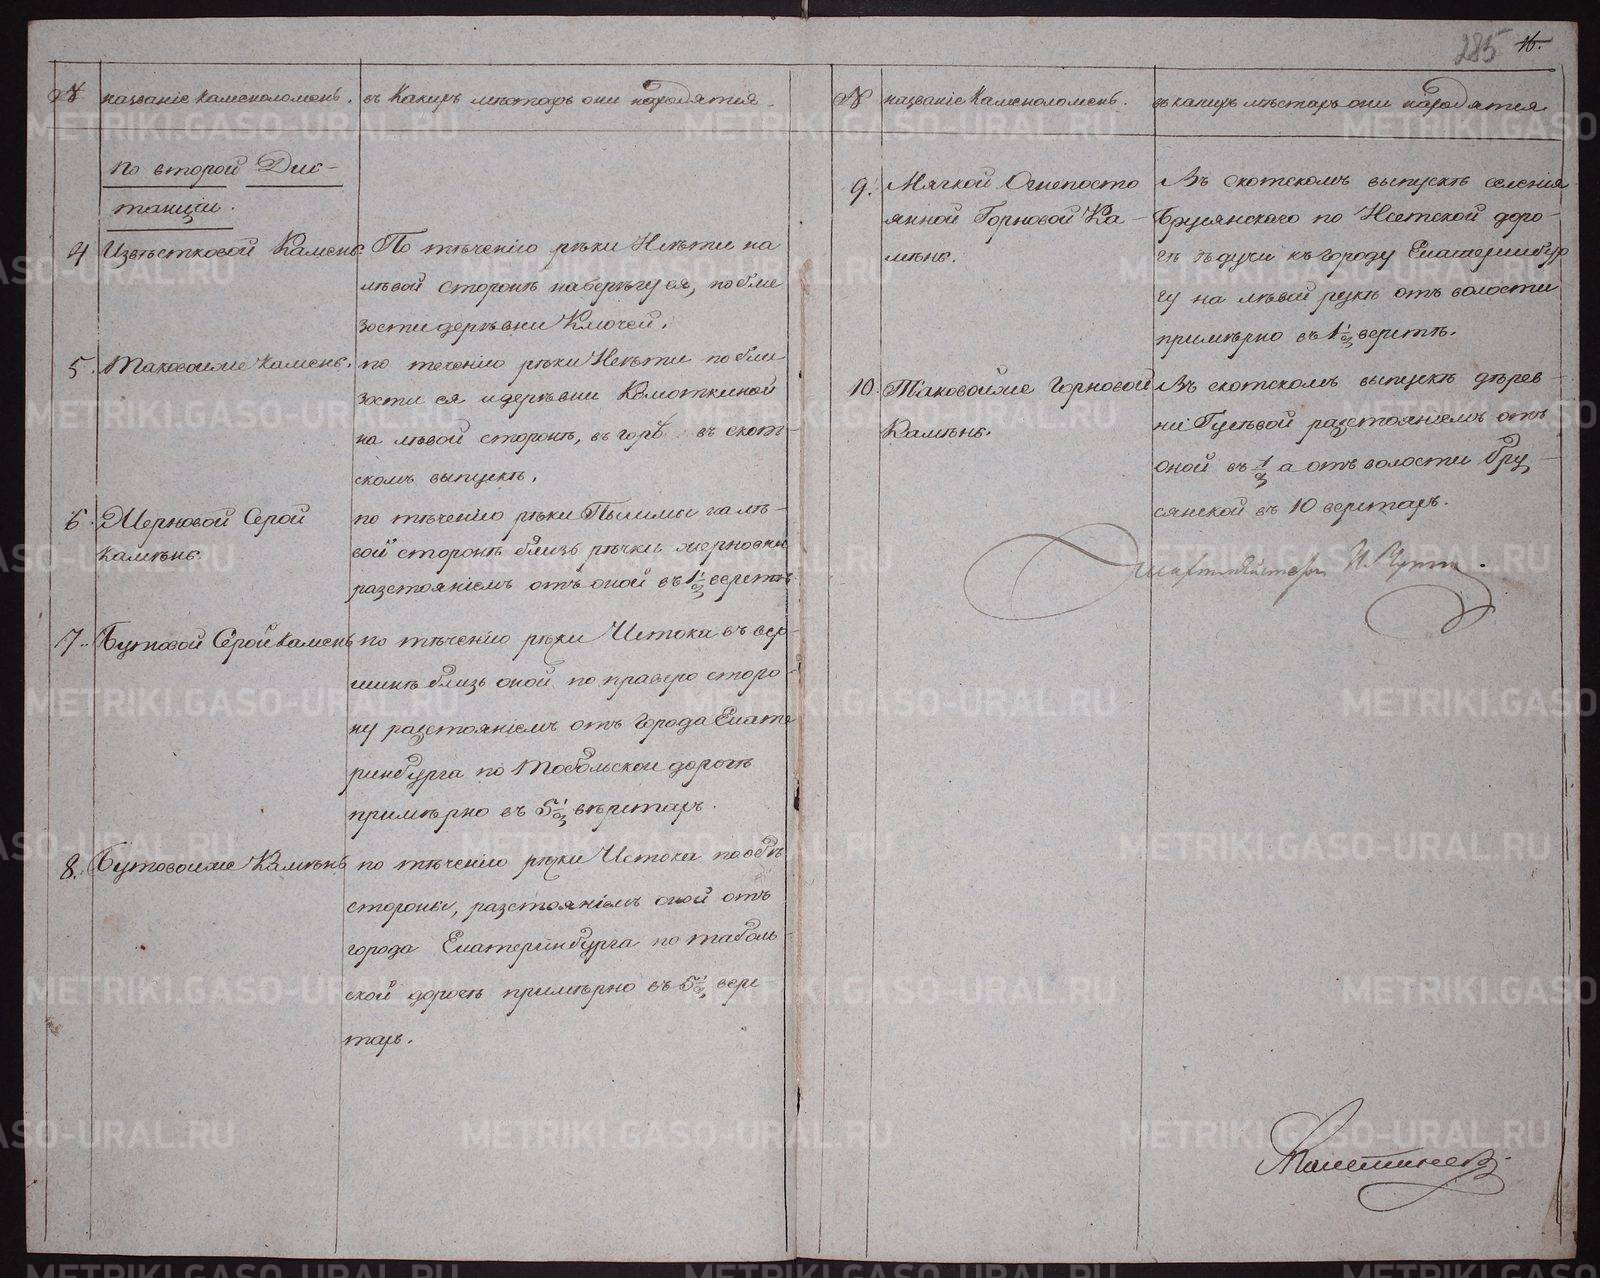 285 16.
№ названіе Каменоломень. въ Какихъ мѣстахъ они находятся
По второй Дис-
танціи.
4 Извѣстковой Камень. По тѣченію рѣки Исѣти на
лѣвой сторонѣ на берѣгу ея, побли
зости деревни Ключей.
5. Таковоиже камень. по теченію рѣки Исѣти побли
зости ея и деревни Колоткиной
на лѣвой сторонѣ, въ горѣ въ скот-
скомъ выпускѣ.
6. Жерновой Серой по тѣченію рѣки Пышмы на лѣ-
камѣнь. вой сторонѣ близь рѣчки жерновки
разстояніемъ отъ оной въ 1½ верстѣ
7. Бутовой Серой Камень по тѣченію рѣки Истока въ вер-
шинѣ близь оной по правую сторо-
ну разстояніемъ отъ города Екате
ринбурга по Тобольской дорогѣ
примѣрно въ 5½ вѣрстахъ.
8. Бутовоиже Камѣнь по тѣченію рѣки Истока по обѣ
стороны, разстояніемъ оной отъ
города Екатеринбурга по таболь
ской дорогѣ примѣрно въ 5½ верс
тахъ.
№ названіе Каменоломень. въ какихъ мѣстахъ они находятся
9. Мягкой Огнепосто Въ скотскомъ выпускѣ селенія
янной Горновой Ка- Брусянскаго по Исетской доро-
мѣнь. гѣ ѣдучи къ городу Екатеринбур
гу на лѣвой рукѣ отъ волости
примѣрно въ 1½ верстѣ.
10. Таковойже Горновой Въ скотскомъ выпускѣ дѣрев-
Камѣнь. ни Гусѣвой разстояніемъ отъ
оной въ ½ а отъ волости Бру-
сянской въ 10 верстахъ.
Шахтмейстеръ